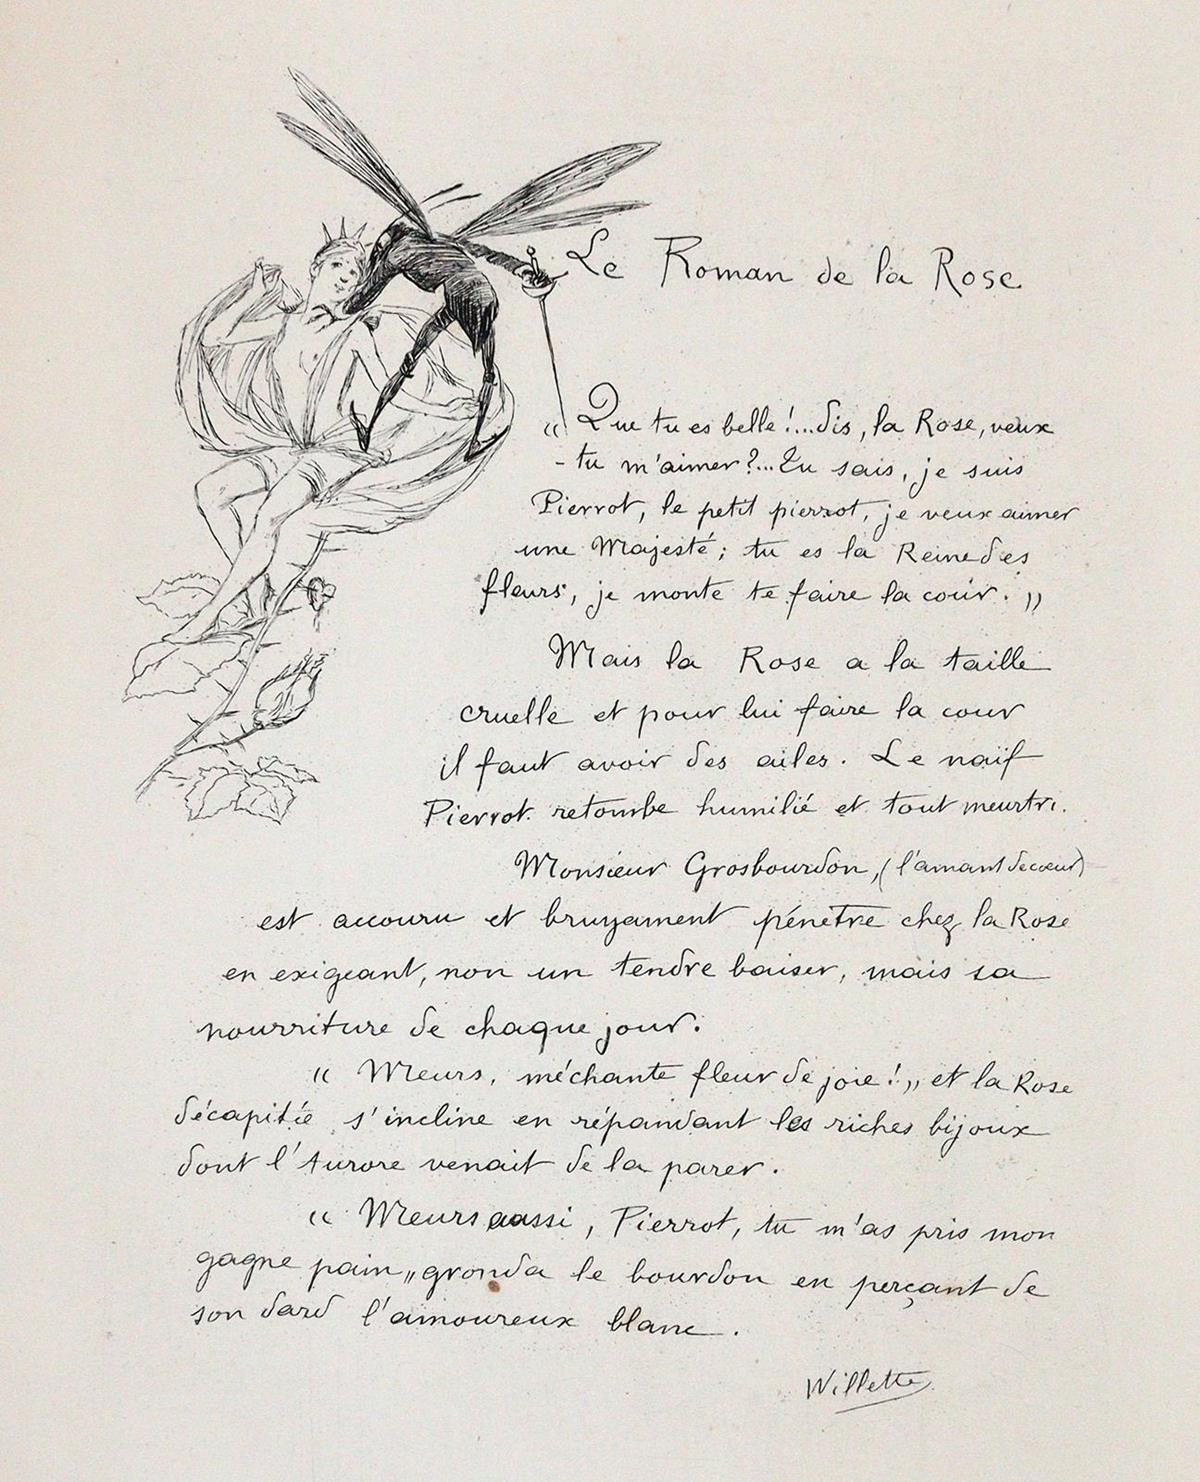 Le Roman de la Rose
« Que tu es belle !...dis, la Rose, veux
-tu m'aimer ?...Tu sais, je suis
Pierrot, le petit pierrot, je veux aimer
une Majesté ; tu es la Reine des
fleurs, je monte te faire la cour. »
Mais la Rose a la taille
cruelle et pour lui faire la cour
il faut avoir des ailes. Le naïf
Pierrot retombe humilié et tout meurtri.
Monsieur Grosbourdon, (l'amant de cœur)
est accouru et bruyament pénètre chez la Rose
en exigeant, non un tendre baiser, mais sa
nourriture de chaque jour.
« Meurs, méchante fleur de joie ! » et la Rose
décapitée s'incline en répandant les riches bijoux
dont l'Aurore venait de la parer.
« Meurs aussi, Pierrot, tu m'as pris mon
gagne pain » gronda le bourdon en perçant de
son dard l'amoureux blanc.
Willette